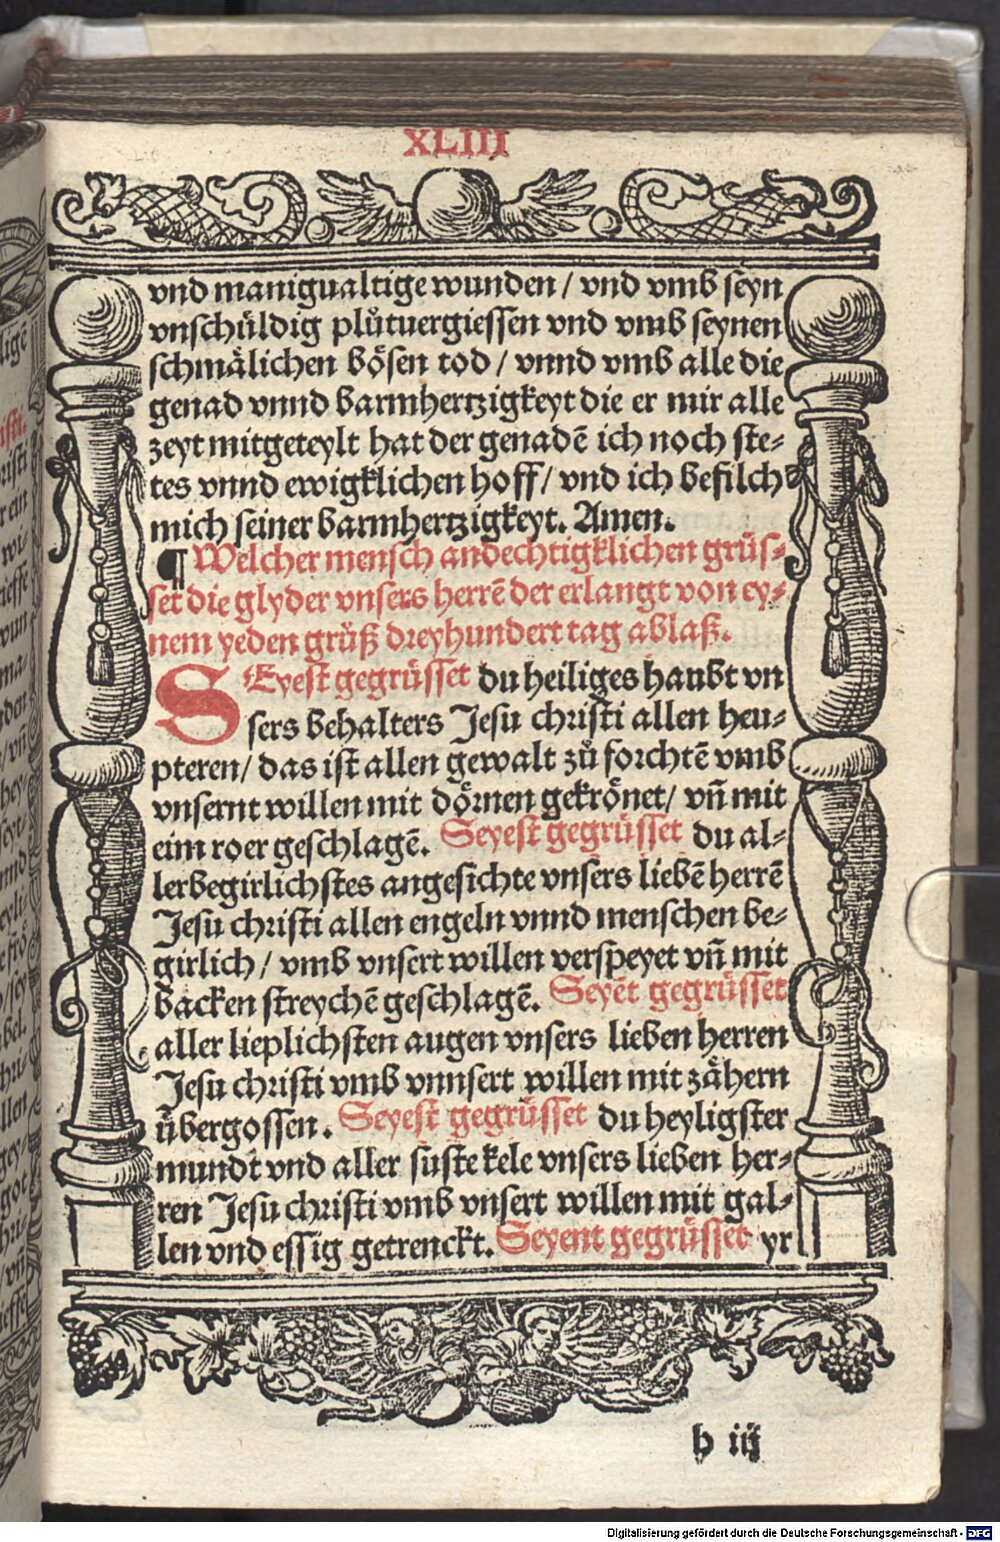 XLIII
vnd manigualtige wunden / vnd vmb seyn
vnschůldig plůtuergiessen vnd vmb seynen
schmålichen bösen tod / vnnd vmb alle die
genad vnnd barmhertzigkeyt die er mir alle
zeyt mitgeteylt hat der genadē ich noch ste⸗
tes vnnd ewigklichen hoff / vnd ich befilch
mich seiner barmhertzigkeyt. Amen.
¶ Welcher mensch andechtigklichen grüs⸗
set die glyder vnsers herrē der erlangt von ey⸗
nem yeden grůß dreyhundert tag ablaß.
SEyest gegrüsset du heiliges haubt vn
sers behalters Jesu christi allen heu⸗
pteren / das ist allen gewalt zů forchtē vmb
vnsernt willen mit dörnen gekrönet / vn̄ mit
eim roer geschlagē. Seyest gegrüsset du al⸗
lerbegirlichstes angesichte vnsers liebē herrē
Jesu christi allen engeln vnnd menschen be⸗
girlich / vmb vnsert willen verspeyet vn̄ mit
backen streychē geschlagē. Seyēt gegrüsset
aller lieplichsten augen vnsers lieben herren
Jesu christi vmb vnnsert willen mit zåhern
übergossen. Seyest gegrüsset du heyligster
mundt vnd aller suste kele vnsers lieben her⸗
ren Jesu christi vmb vnsert willen mit gal⸗
len vnd essig getrenckt. Seyent gegrüsset yr
h iij
Digitalisierung gefördert durch die Deutsche Forschungsgemeinschaft - DFG